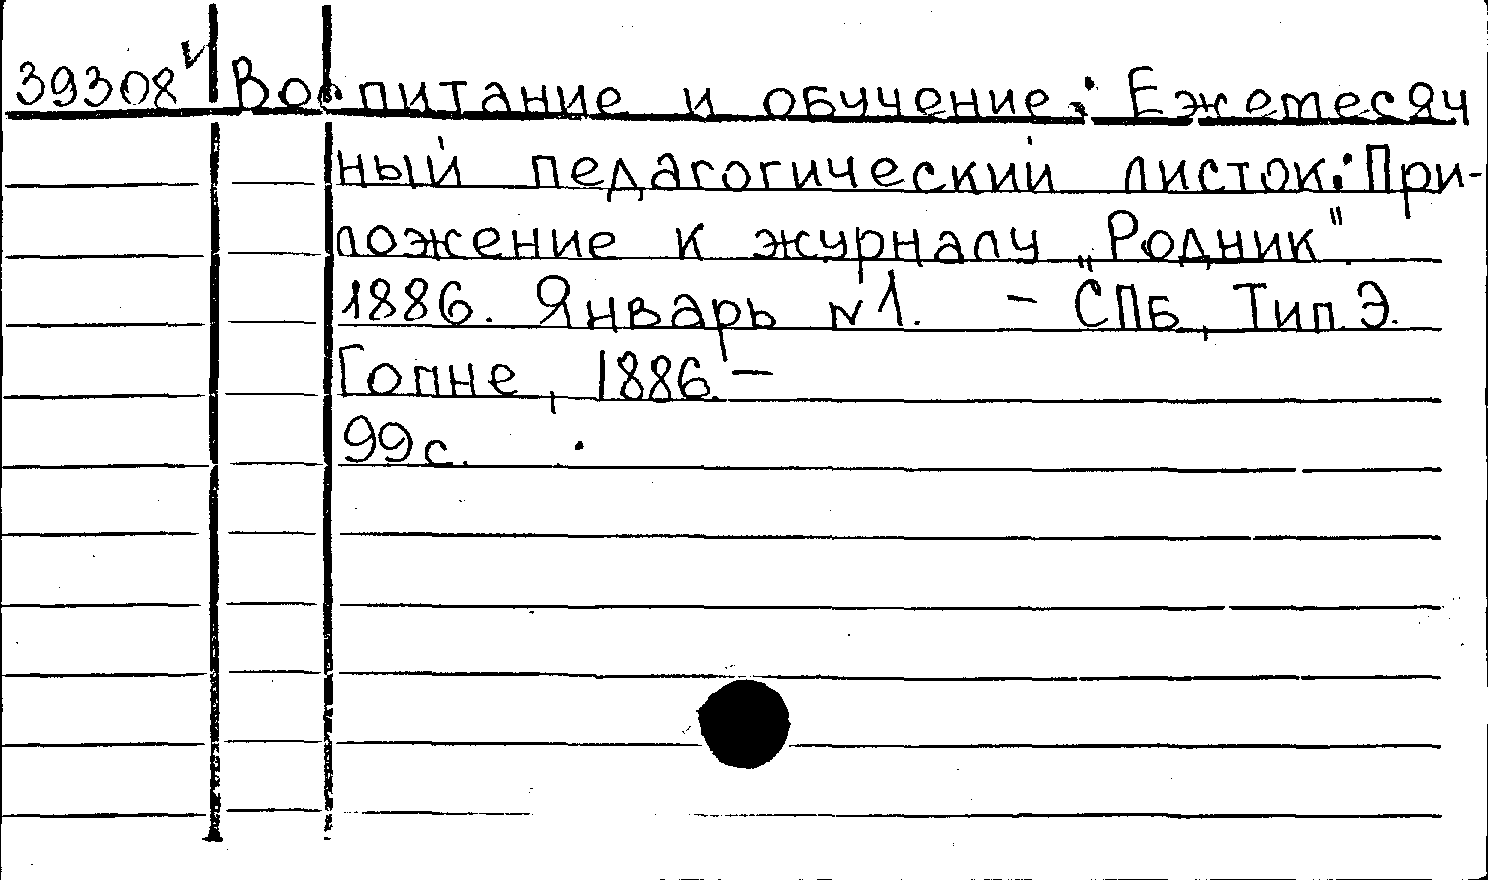 39308 Воспитание и обучение: Ежемесяч
ный педагогический листок: При-
ложение к журналу „Родник".
1886. Январь №1. – СПБ, Тип. Э.
Гопне, 1886. –
99 с.